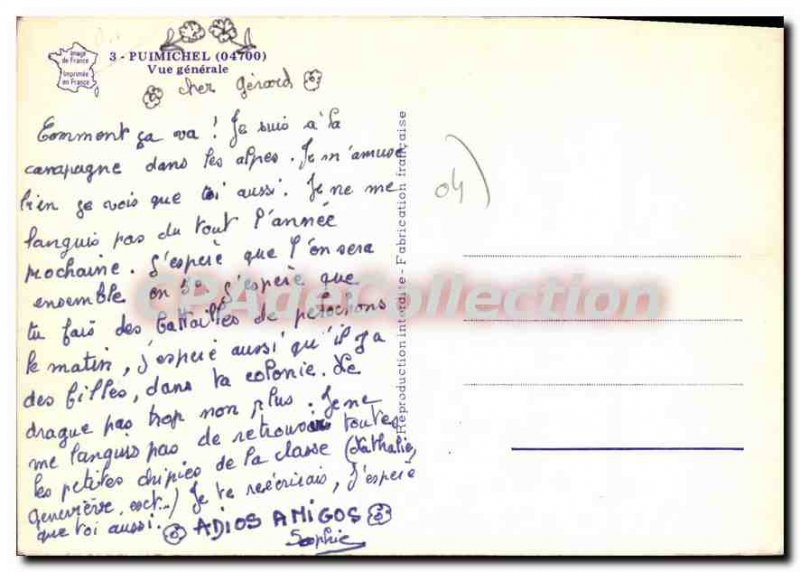 Image
de France
Imprimée
en France
3 - PUIMICHEL (04700)
Vue générale
cher gérard
Comment ça va ! Je suis à la
campagne dans les alpes. Je m'amuse
bien je vois que toi aussi. Je ne me
languis pas du tout l'année
prochaine. J'espère que l'on sera
ensemble en 3e. J'espère que
tu fais des battailles de polochons
le matin, j'espère aussi qu'il y a
des filles, dans ta colonie. Le
drague pas trop non plus. Je ne
me languis pas de retrouver toutes
les petites chipies de la classe (Nathalie,
Geneviève, ect...) Je te réécrirais, j'espère
que toi aussi. ADIOS AMIGOS
Sophie
Reproduction interdite - Fabrication française
04
CPAdeCollection